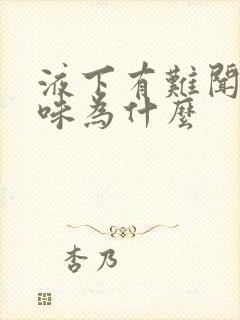 液下有難聞
味為什麼
杏乃